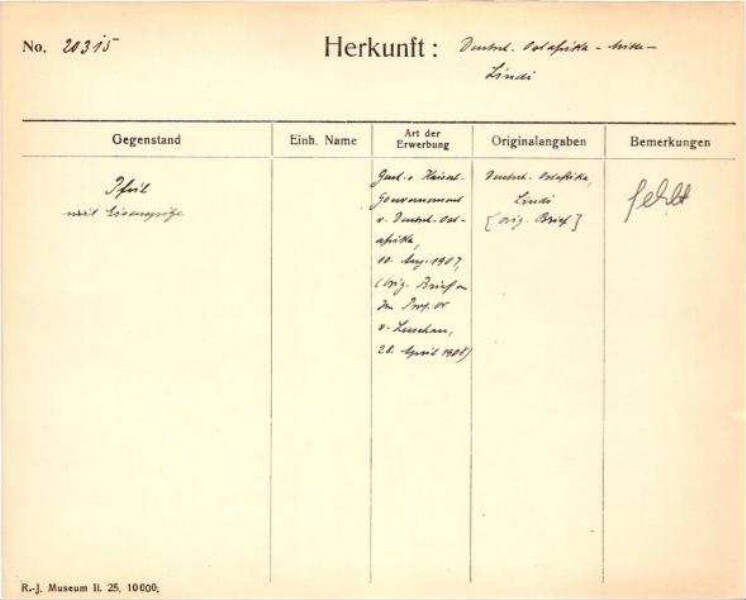 No. 20315
Herkunft: Deutsch-Ostafrika - Mitte -
Lindi
Gegenstand
Einh. Name
Art der
Erwerbung
Originalangaben
Bemerkungen
Pfeil
mit Eisenspitze
v. Kaiserl.
Gouvernement
v. Deutsch-Ost-
afrika,
10. Aug. 1907,
(Orig. Brief an
den Prof. Dr
v. Luschan,
28. April 1908)
Deutsch-Ostafrika,
Lindi
[orig. Brief]
fehlt
R.-J. Museum II. 25. 10000.